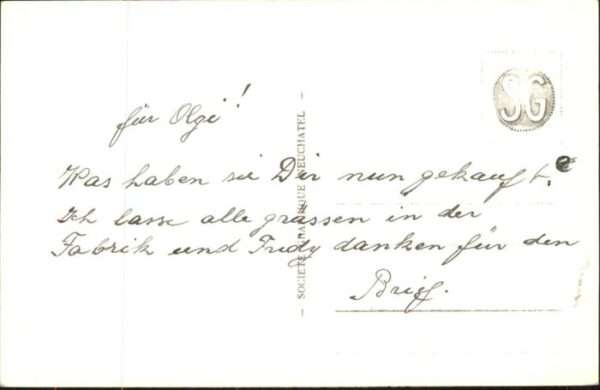 für Olgi!
Was haben sie Dir nun gekauft?
Ich lasse alle grüssen in der
Fabrik und Trudy danken für den
Brief.
SG
— SOCIÉTÉ GRAPHIQUE NEUCHATEL —